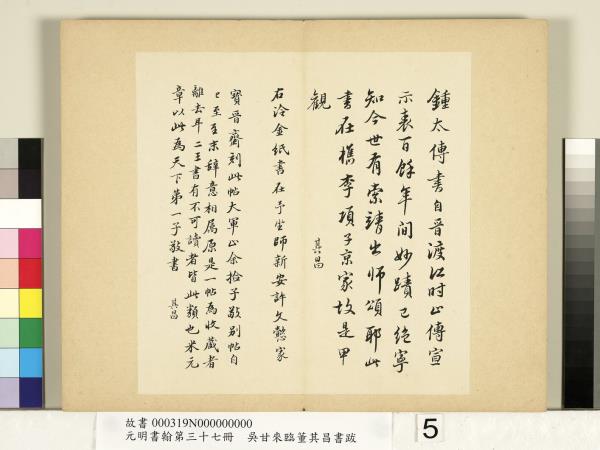 鍾太傅書自晉渡江時止傳宣
示表百餘年間妙蹟已絕寧
知今世有索靖出師頌耶此
書在檇李項子京家故是甲
觀
其昌
右冷金紙書在予坐師新安許文懿家
寶晉齋刻此帖大軍止余捨子敬別帖自
已至至末辭意相属原是一帖為收藏者
離去耳二王書有不可讀者皆此類也米元
章以此為天下第一子敬書
其昌
故書 000319N000000000
元明書翰第三十七冊 吳甘來臨董其昌書跋
5